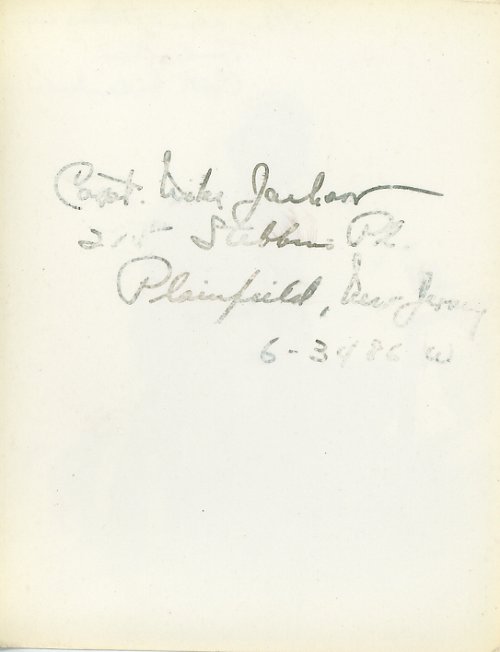 Capt. Mike Jackson
Stebbins Pl.
Plainfield, New Jersey
6-3486 W